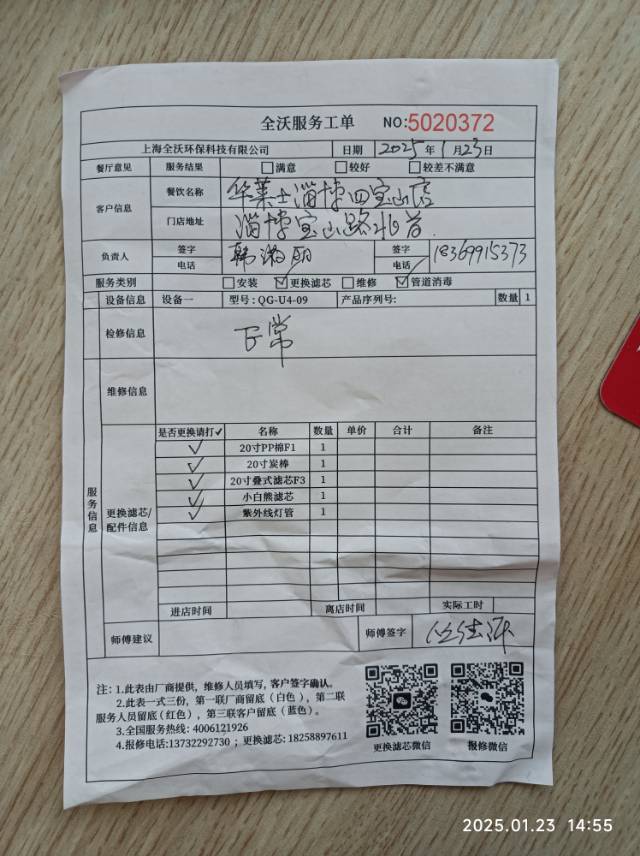 全沃服务工单 NO:5020372
上海全沃环保科技有限公司 日期 2025年1月23日
餐厅意见 服务结果 满意 较好 较差不满意
客户信息 餐饮名称 华莱士淄博四宝山店
门店地址 淄博宝山路北首
负责人 签字 韩淑丽 签字
电话 电话 18369915373
服务类别 安装 更换滤芯 维修 管道消毒
设备信息 设备一 型号:QG-U4-09 产品序列号: 数量 1
检修信息 正常
维修信息
服务信息
是否更换请打✓ 名称 数量 单价 合计 备注
✓ 20寸PP棉F1 1
✓ 20寸炭棒 1
✓ 20寸叠式滤芯F3 1
✓ 小白熊滤芯 1
更换滤芯/配件信息
✓ 紫外线灯管 1
进店时间 离店时间 实际工时
师傅建议 师傅签字
注: 1.此表由厂商提供, 维修人员填写, 客户签字确认。
2.此表一式三份, 第一联厂商留底(白色), 第二联
服务人员留底(红色), 第三联客户留底(蓝色)。
3.全国服务热线: 4006121926
4.报修电话:13732292730 ; 更换滤芯: 18258897611
更换滤芯微信 报修微信
2025.01.23 14:55